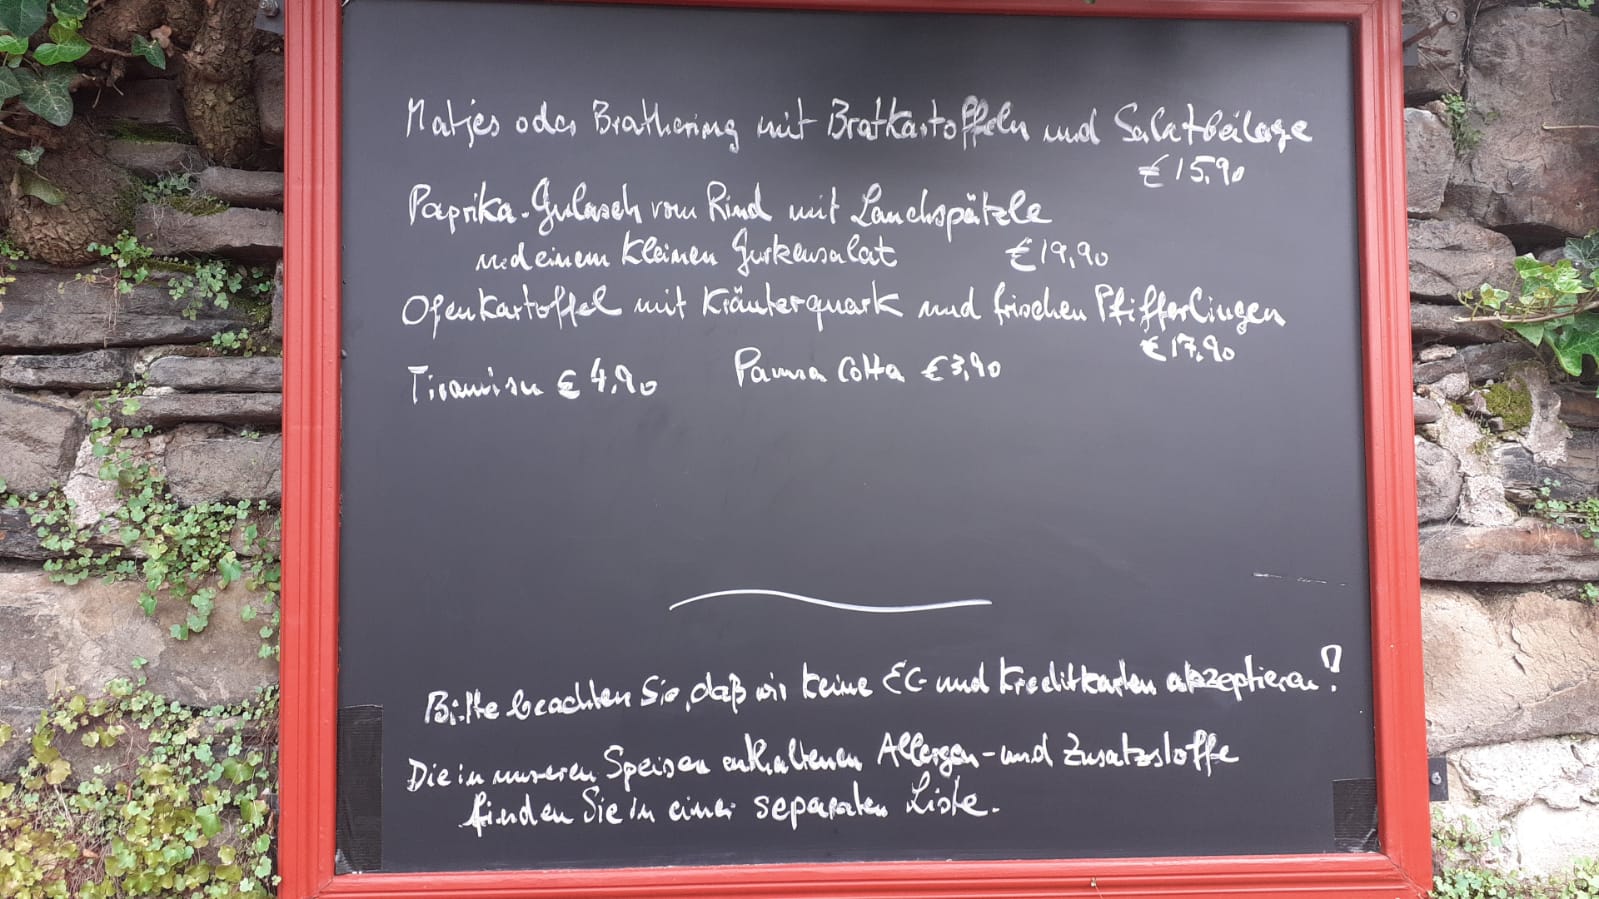 Matjes oder Brathering mit Bratkartoffeln und Salatbeilage
€ 15,90
Paprika-Gulasch vom Rind mit Lauchspätzle
und einem kleinen Gurkensalat € 19,90
Ofenkartoffel mit Kräuterquark und frischen Pfifferlingen
€ 17,90
Tiramisu € 4,90 Panna Cotta € 3,90
Bitte beachten Sie, daß wir keine EC- und Kreditkarten akzeptieren!
Die in unseren Speisen enthaltenen Allergen- und Zusatzstoffe
finden Sie in einer separaten Liste.